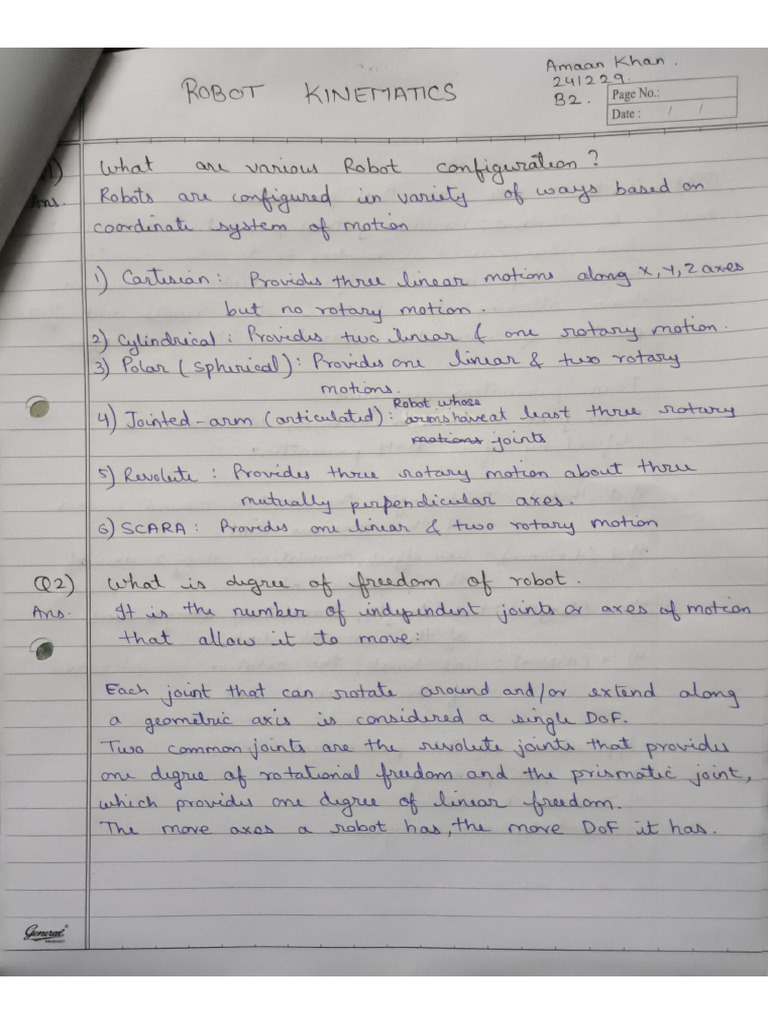 Amaan Khan.
241229.
B2.
Page No.:
Date : / /
ROBOT KINEMATICS
1) What are various Robot configuration?
Ans. Robots are configured in variety of ways based on
coordinate system of motion
1) Cartesian: Provides three linear motions along X, Y, Z axes
but no rotary motion.
2) Cylindrical: Provides two linear & one rotary motion.
3) Polar (Spherical): Provides one linear & two rotary
motions.
Robot whose
4) Jointed-arm (articulated): arms have at least three rotary
motions joints
5) Revolute: Provides three rotary motion about three
mutually perpendicular axes.
6) SCARA: Provides one linear & two rotary motion
Q2) What is degree of freedom of robot.
Ans. It is the number of independent joints or axes of motion
that allow it to move:
Each joint that can rotate around and/or extend along
a geometric axis is considered a single DoF.
Two common joints are the revolute joints that provides
one degree of rotational freedom and the prismatic joint,
which provides one degree of linear freedom.
The more axes a robot has, the more DoF it has.
General